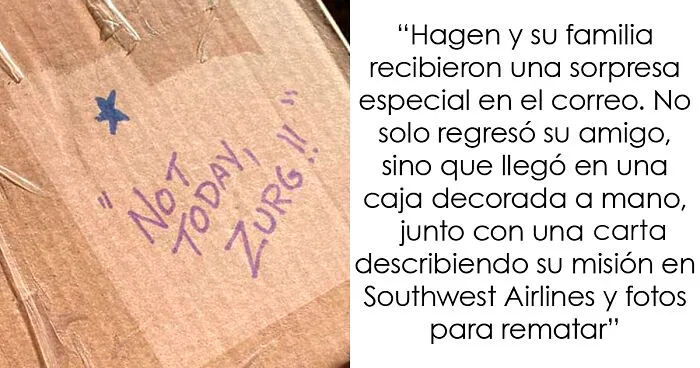 "NOT
TODAY,
ZURG!!"
“Hagen y su familia
recibieron una sorpresa
especial en el correo. No
solo regresó su amigo,
sino que llegó en una
caja decorada a mano,
junto con una carta
describiendo su misión en
Southwest Airlines y fotos
para rematar”